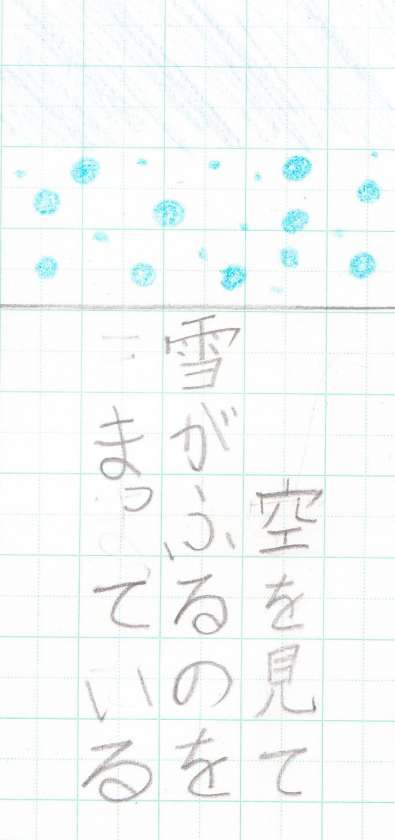 空を見て
雪がふるのを
まっている